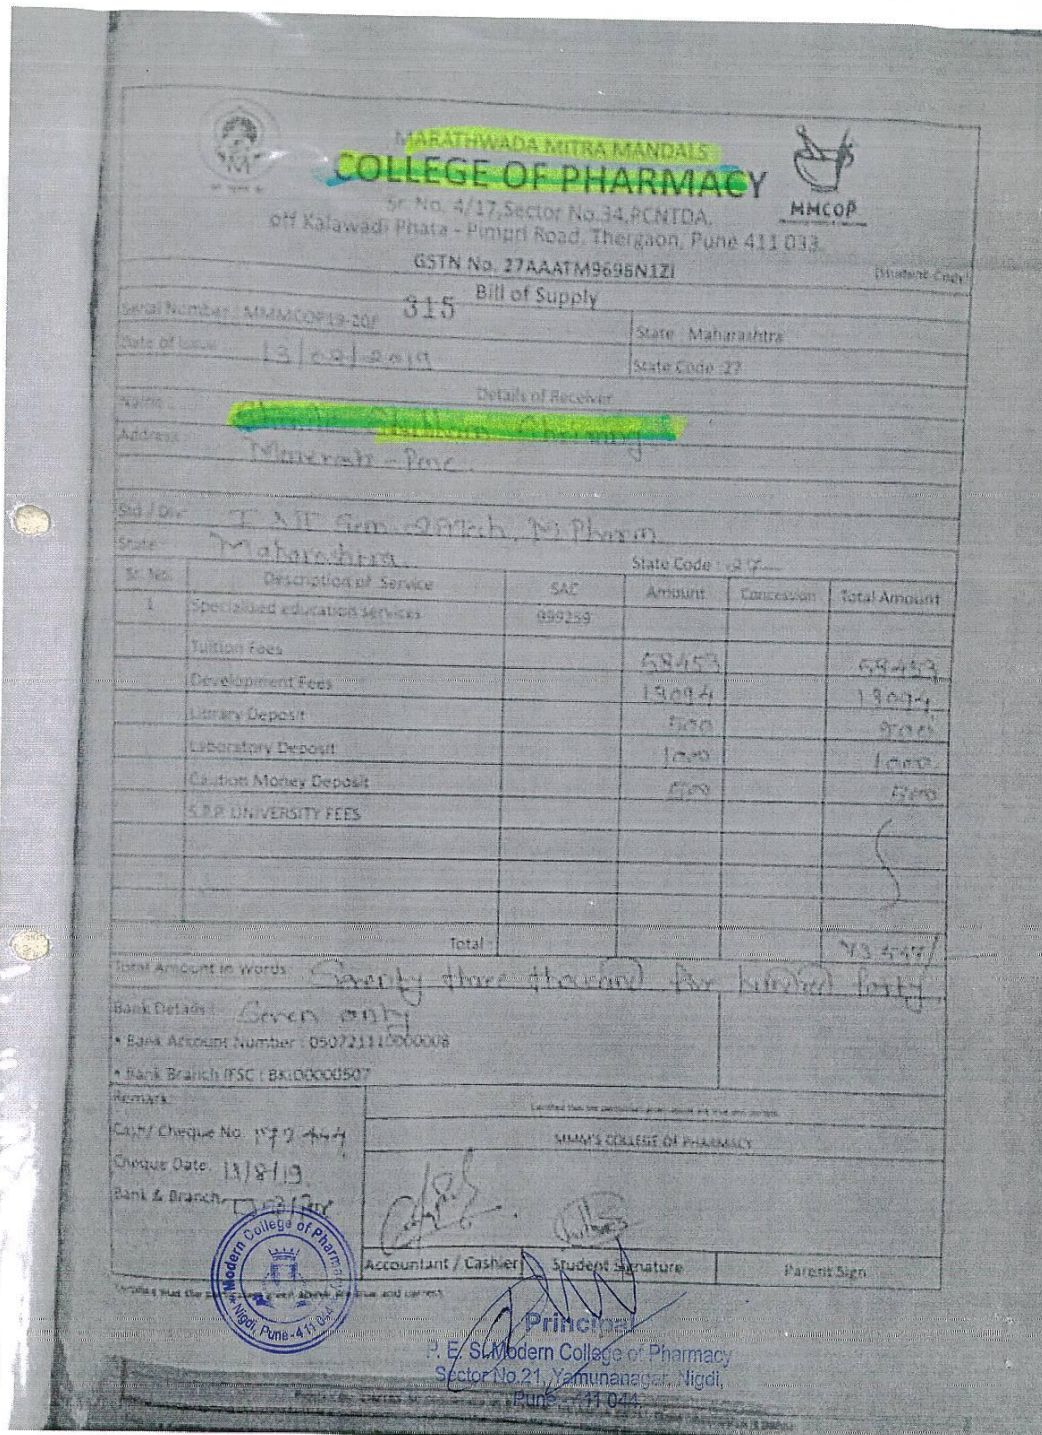 MARATHWADA MITRA MANDALS
COLLEGE OF PHARMACY
MMCOP
Sr. No. 4/17,Sector No.34,PCNTDA,
off Kalawadi Phata - Pimpri Road, Thergaon, Pune 411 033.
GSTN No. 27AAATM9698N1ZI
(Student Copy)
Bill of Supply
Serial Number : MMMCOP19-20/ 315
State : Maharashtra
Date of Issue 13/08/2019
State Code :27
Details of Receiver
Name :
Address :
- Pune.
Std / Div I Sem M.Pharm
State : Maharashtra.
State Code : 27
Sr. No. Description of Service SAC Amount Concession Total Amount
1 Specialised education services 999259
Tuition Fees 58453 58453
Development Fees 13094 13094
Library Deposit 500 500
Laboratory Deposit 1000 1000
Caution Money Deposit 500 500
S.P.P. UNIVERSITY FEES
Total : 73547/
Total Amount in Words : Seventy three thousand five hundred forty
Bank Details : Seven only
• Bank Account Number : 050721110000008
• Bank Branch IFSC : BKID0000507
Remark:
Cash/ Cheque No.
MMM'S COLLEGE OF PHARMACY
Cheque Date. 13/8/19.
Bank & Branch
Accountant / Cashier Student Signature Parent Sign
Certified that the particulars given above are true and correct
Modern College of Pharmacy
Nigdi, Pune-411 044
Principal
P. E. S. Modern College of Pharmacy
Sector No.21, Yamunanagar, Nigdi,
Pune - 411 044.